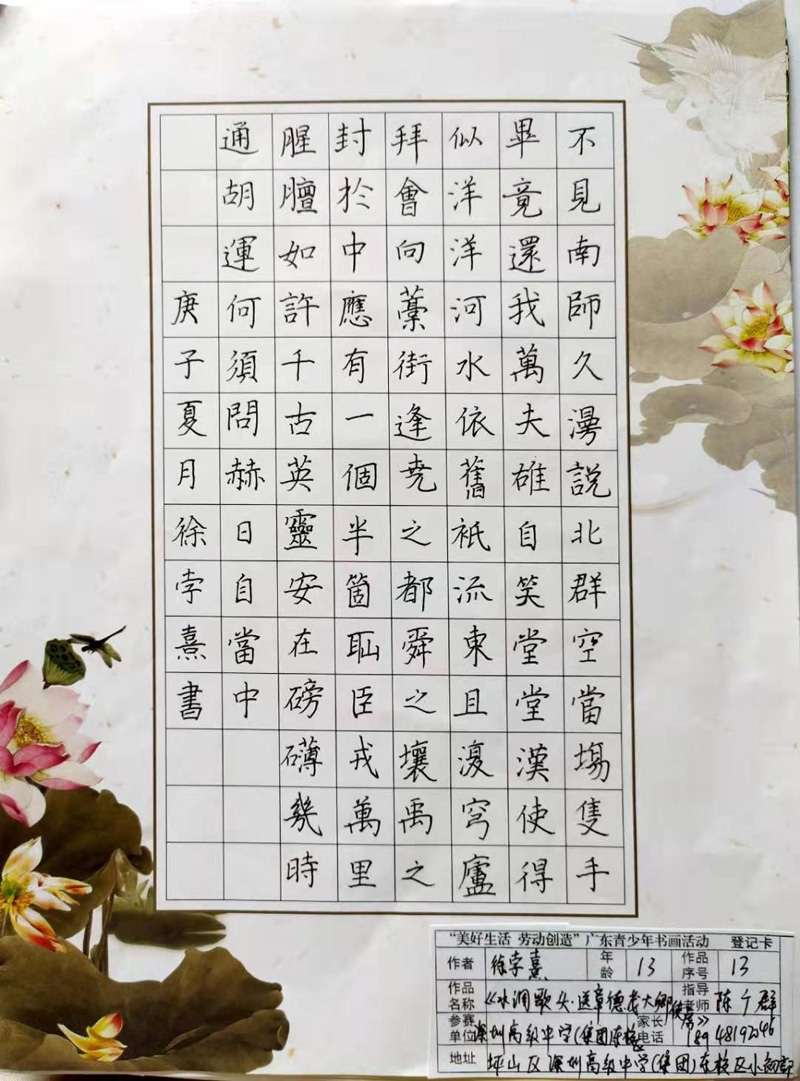 不見南師久漫說北群空當場隻手
畢竟還我萬夫雄自笑堂堂漢使得
似洋洋河水依舊衹流東且復穹廬
拜會向藁街逢堯之都舜之壤禹之
封於中應有一個半箇恥臣戎萬里
腥膻如許千古英靈安在磅礴幾時
通胡運何須問赫日自當中
庚子夏月徐孛熹書
“美好生活 劳动创造”广东青少年书画活动 登记卡
作者 徐孛熹 年龄 13 作品序号 13
作品名称 《水调歌头·送章德茂大卿使虏》 指导老师 陈广群
参赛单位 深圳高级中学(集团)东校区 家长电话
地址 坪山区深圳高级中学(集团)东校区